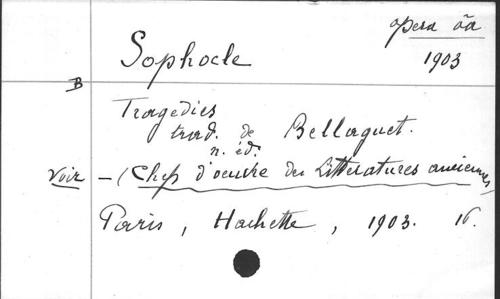 opera õa
Sophocle
1903
B
Tragedies
trad. de Bellaguet.
n. éd.
Voir – (Chefs d'oeuvre des Litteratures anciennes)
Paris, Hachette, 1903. 16.